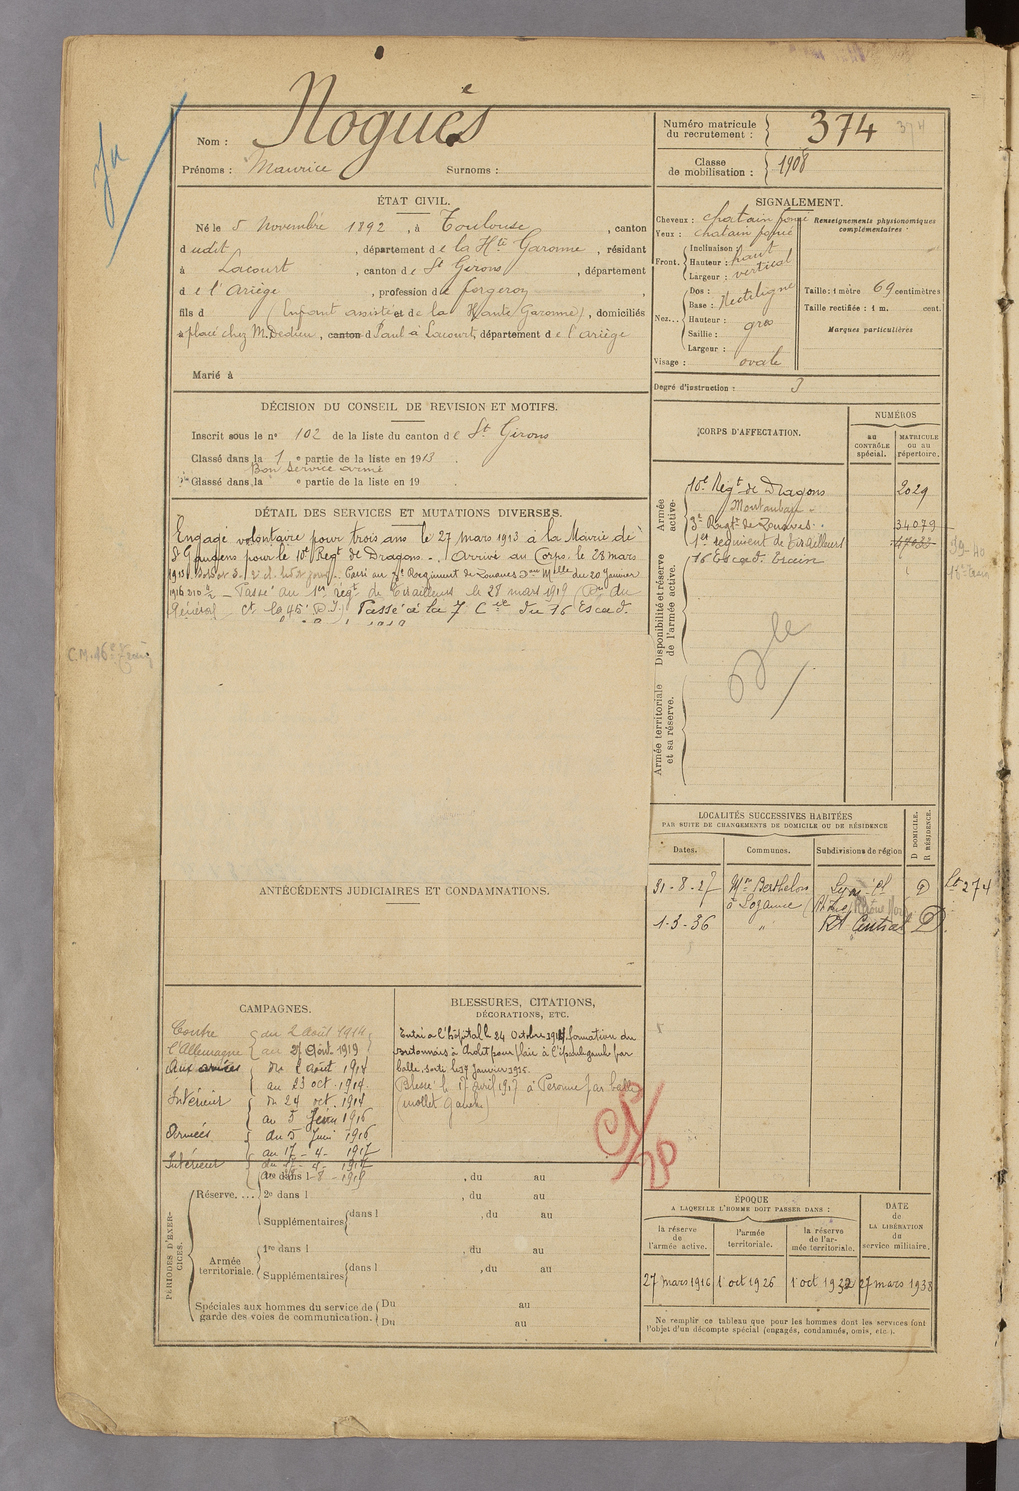 Nom : Noguès
Prénoms : Maurice Surnoms :
Numéro matricule du recrutement : 374
Classe de mobilisation : 1908
ÉTAT CIVIL.
Né le 5 Novembre 1892, à Toulouse, canton
d udit, département de la Hte Garonne, résidant
à Lacourt, canton de St Girons, département
d e l'Ariège, profession de forgeron
fils d (Enfant assisté et de la Haute Garonne), domiciliés
à placé chez M. Dedieu, canton d Paul à Lacourt, département de l'Ariège
Marié à
SIGNALEMENT.
Cheveux : chatain foncé
Yeux : chatain foncé
Front. Inclinaison :
Hauteur : haut
Largeur : vertical
Nez... Dos : Rectiligne
Base :
Hauteur : gros
Saillie :
Largeur :
Visage : ovale
Renseignements physionomiques complémentaires :
Taille : 1 mètre 69 centimètres
Taille rectifiée : 1 m. cent.
Marques particulières
Degré d'instruction : 3
DÉCISION DU CONSEIL DE REVISION ET MOTIFS.
Inscrit sous le n° 102 de la liste du canton de St Girons
Classé dans la 1 e partie de la liste en 1913.
Bon service armé
Classé dans la e partie de la liste en 19
DÉTAIL DES SERVICES ET MUTATIONS DIVERSES.
Engagé volontaire pour trois ans le 27 mars 1913 à la Mairie de
St Gaudens pour le 10e Régt de Dragons. Arrivé au Corps le 28 mars
1913. Passé au 3e Régiment de Zouaves du 20 Janvier
1916 Passé au 1er régt de Tirailleurs le 28 mars 1919 du
Général Ct la 45e D.I) Passé à la 7 Cie du 16 Escad.
C.M. 16e Train
CORPS D'AFFECTATION.
NUMÉROS
au CONTRÔLE spécial.
MATRICULE ou au répertoire.
Armée active.
10e Régt de Dragons 2029
Montauban
3e Régt de Zouaves 34079
1er régiment de tirailleurs
16 Escad. train
Disponibilité et réserve de l'armée active.
Armée territoriale et sa réserve.
LOCALITÉS SUCCESSIVES HABITÉES
PAR SUITE DE CHANGEMENTS DE DOMICILE OU DE RÉSIDENCE
Dates. Communes. Subdivisions de région
D DOMICILE. R RÉSIDENCE.
31-8-27 Mon Berthelon D
à Lozanne (Rhône)
1-3-36 " Rh Central D
ANTÉCÉDENTS JUDICIAIRES ET CONDAMNATIONS.
CAMPAGNES.
Contre du 2 Août 1914
l'Allemagne au 27 Août 1919
Aux armées du 2 août 1914
au 23 oct. 1914
Intérieur du 24 oct. 1914
au 5 Juin 1916
Armées du 5 Juin 1916
au 17-4-1917
Intérieur
BLESSURES, CITATIONS,
DÉCORATIONS, ETC.
Entré à l'hôpital le 24 Octobre 1914, formation du
à Cholet pour plaie à l'épaule gauche par
balle, sorti le 19 Janvier 1915.
Blessé le 17 Avril 1917 à Peronne par balle
(mollet gauche)
PÉRIODES D'EXERCICES.
Réserve.... 1re dans l , du au
2e dans l , du au
Supplémentaires dans l , du au
Armée territoriale. 1re dans l , du au
Supplémentaires dans l , du au
Spéciales aux hommes du service de garde des voies de communication. Du au
Du au
ÉPOQUE
A LAQUELLE L'HOMME DOIT PASSER DANS :
la réserve de l'armée active.
l'armée territoriale.
la réserve de l'armée territoriale.
DATE de LA LIBÉRATION du service militaire.
27 mars 1916 1 oct 1926 1 oct 1932 27 mars 1938
Ne remplir ce tableau que pour les hommes dont les services font
l'objet d'un décompte spécial (engagés, condamnés, omis, etc.).